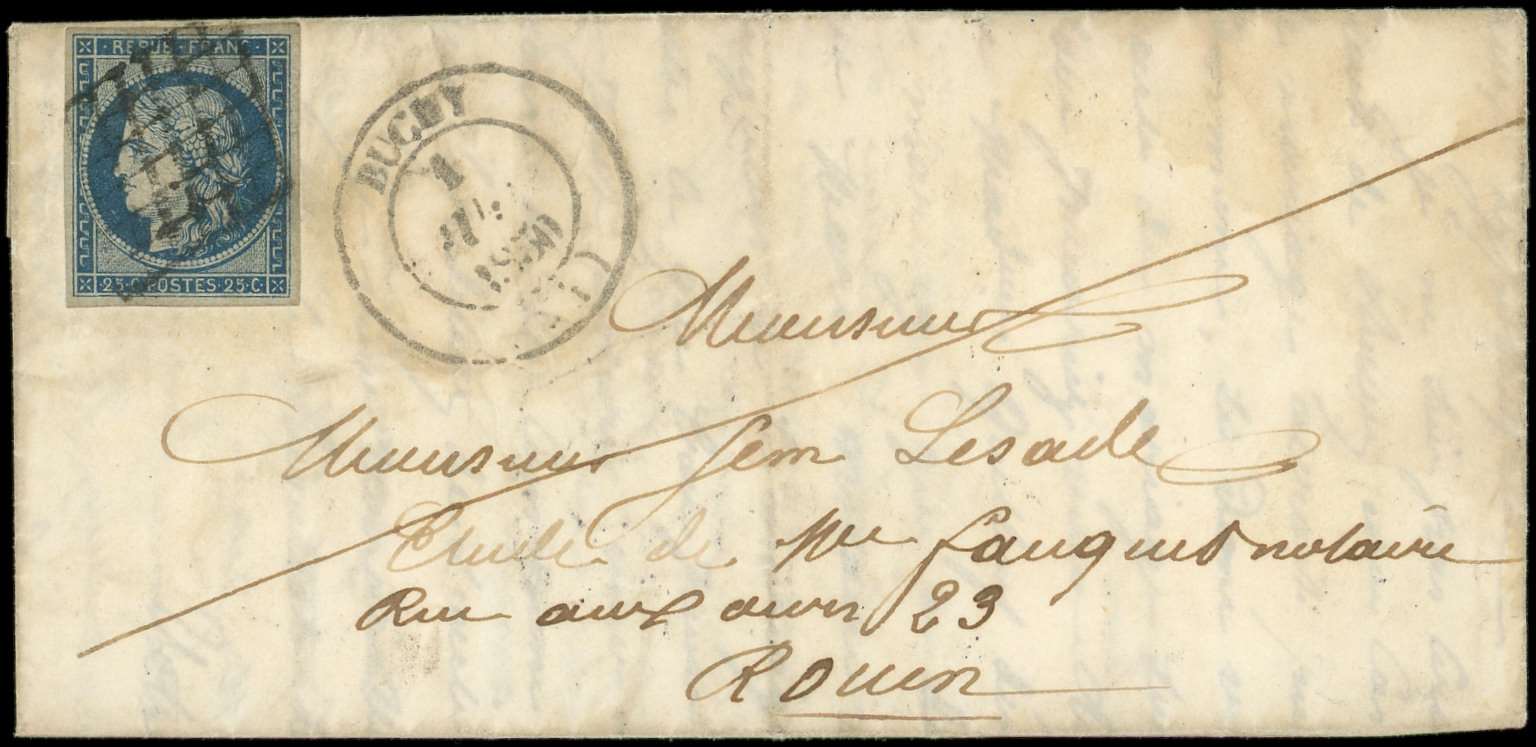 REPUB·FRANC·
25·C·POSTES·25·C·
BUCHY
1
JUIL
1850
Monsieur
Monsieur fern Lesade
Etude de Me fauquet notaire
Rue aux ours 23
Rouen